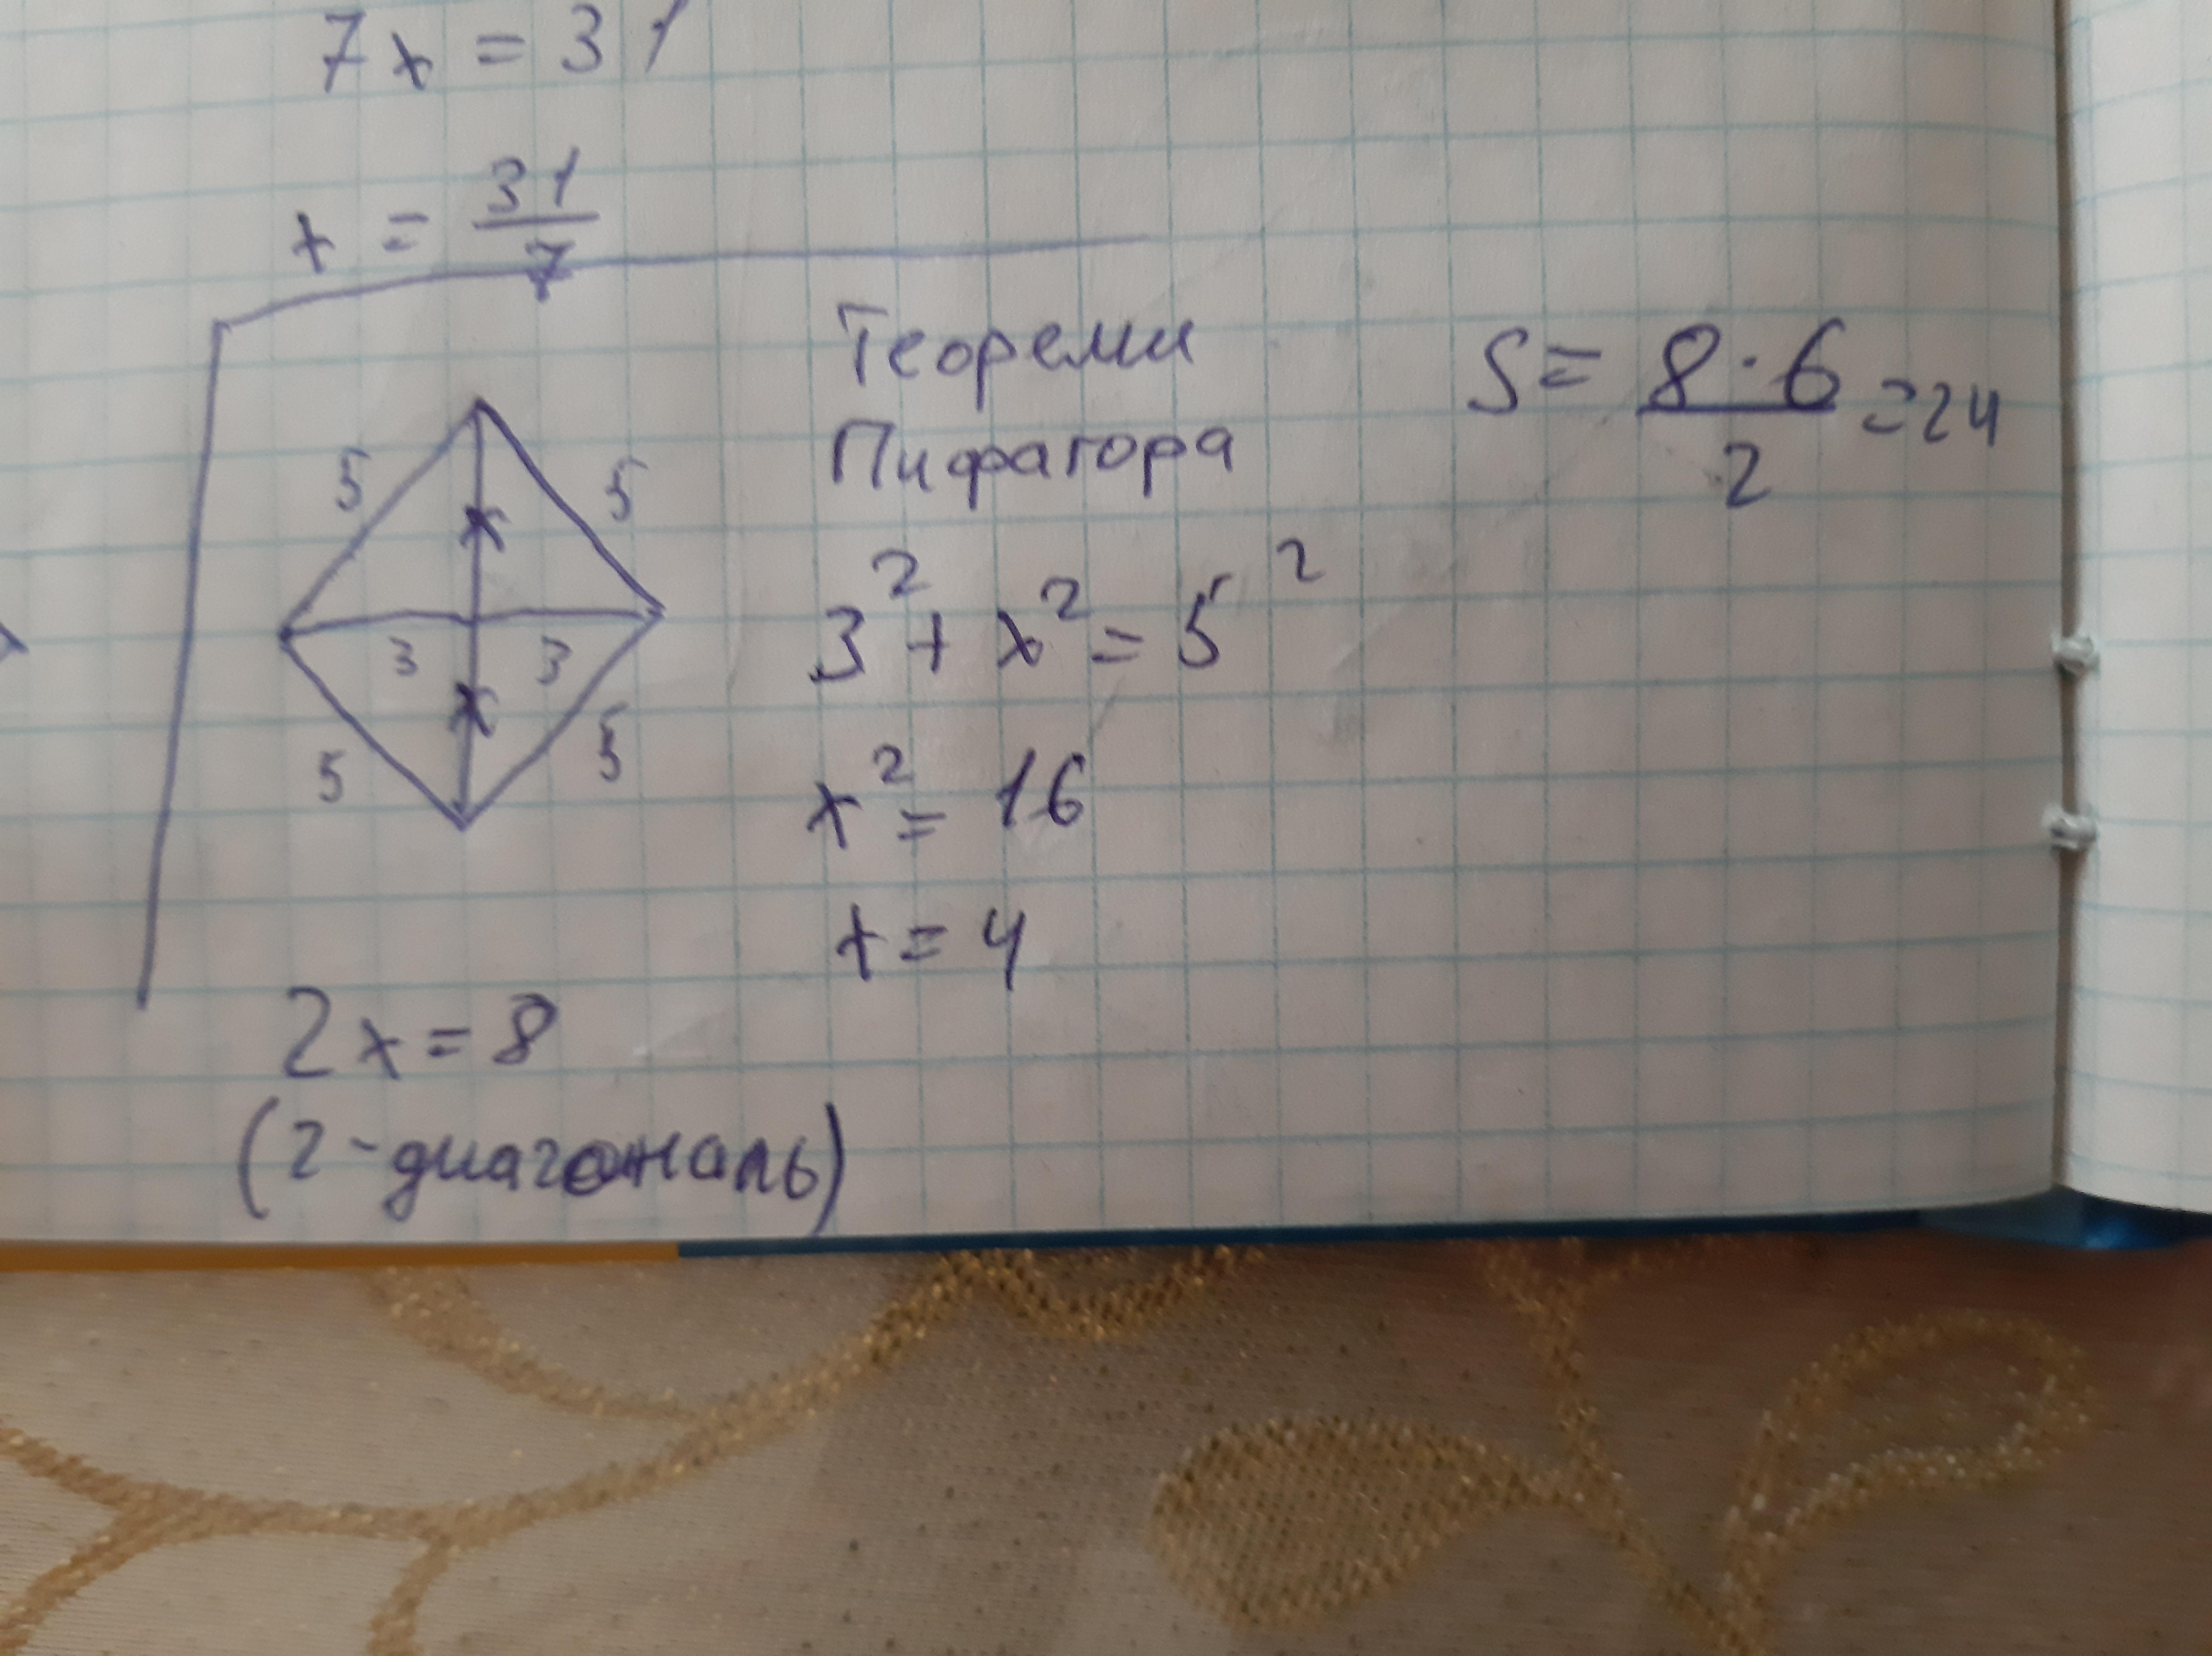 7x = 31
x = 31/7
5 5
x
3 3
x
5 5
Теореми
Пифагора
3² + x² = 5²
x² = 16
x = 4
S = 8·6/2 = 24
2x = 8
(2-диагональ)